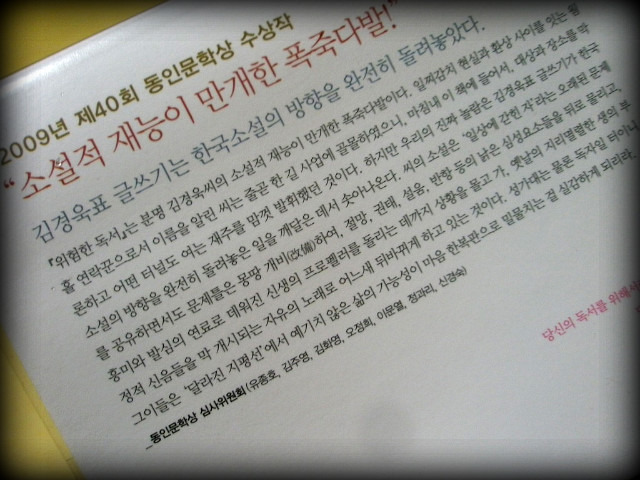 2009년 제40회 동인문학상 수상작
“소설적 재능이 만개한 폭죽다발!”
김경욱표 글쓰기는 한국소설의 방향을 완전히 돌려놓았다.
『위험한 독서』는 분명 김경욱씨의 소설적 재능이 만개한 폭죽다발이다. 일찌감치 현실과 환상 사이를 잇는 웜
홀 연락꾼으로서 이름을 알린 씨는 줄곧 한 길 사업에 골몰하였으니, 마침내 이 책에 들어서, 대상과 장소를 막
론하고 어떤 터널도 여는 재주를 맘껏 발휘했던 것이다. 하지만 우리의 진짜 놀람은 김경욱표 글쓰기가 한국
소설의 방향을 완전히 돌려놓은 일을 깨달은 데서 솟아나온다. 씨의 소설은 '일상에 갇힌 자'라는 오래된 문제
를 공유하면서도 문제틀은 몽땅 개비(改備)하여, 절망, 권태, 설움, 반항 등의 낡은 심성요소들을 뒤로 물리고,
흥미와 발심의 연료로 데워진 신생의 프로펠러를 돌리는 데까지 상황을 몰고 가, 옛날의 지리멸렬한 생의 부
정적 신음들을 막 개시되는 자유의 노래로 어느새 뒤바뀌게 하고 있는 것이다. 성가대는 물론 독자일 터이니
그이들은 '달라진 지평선'에서 예기치 않은 삶의 가능성이 마음 한복판으로 밀물치는 걸 실감하게 되리라.
_동인문학상 심사위원회(유종호, 김주영, 김화영, 오정희, 이문열, 정과리, 신경숙)
당신의 독서를 위해서